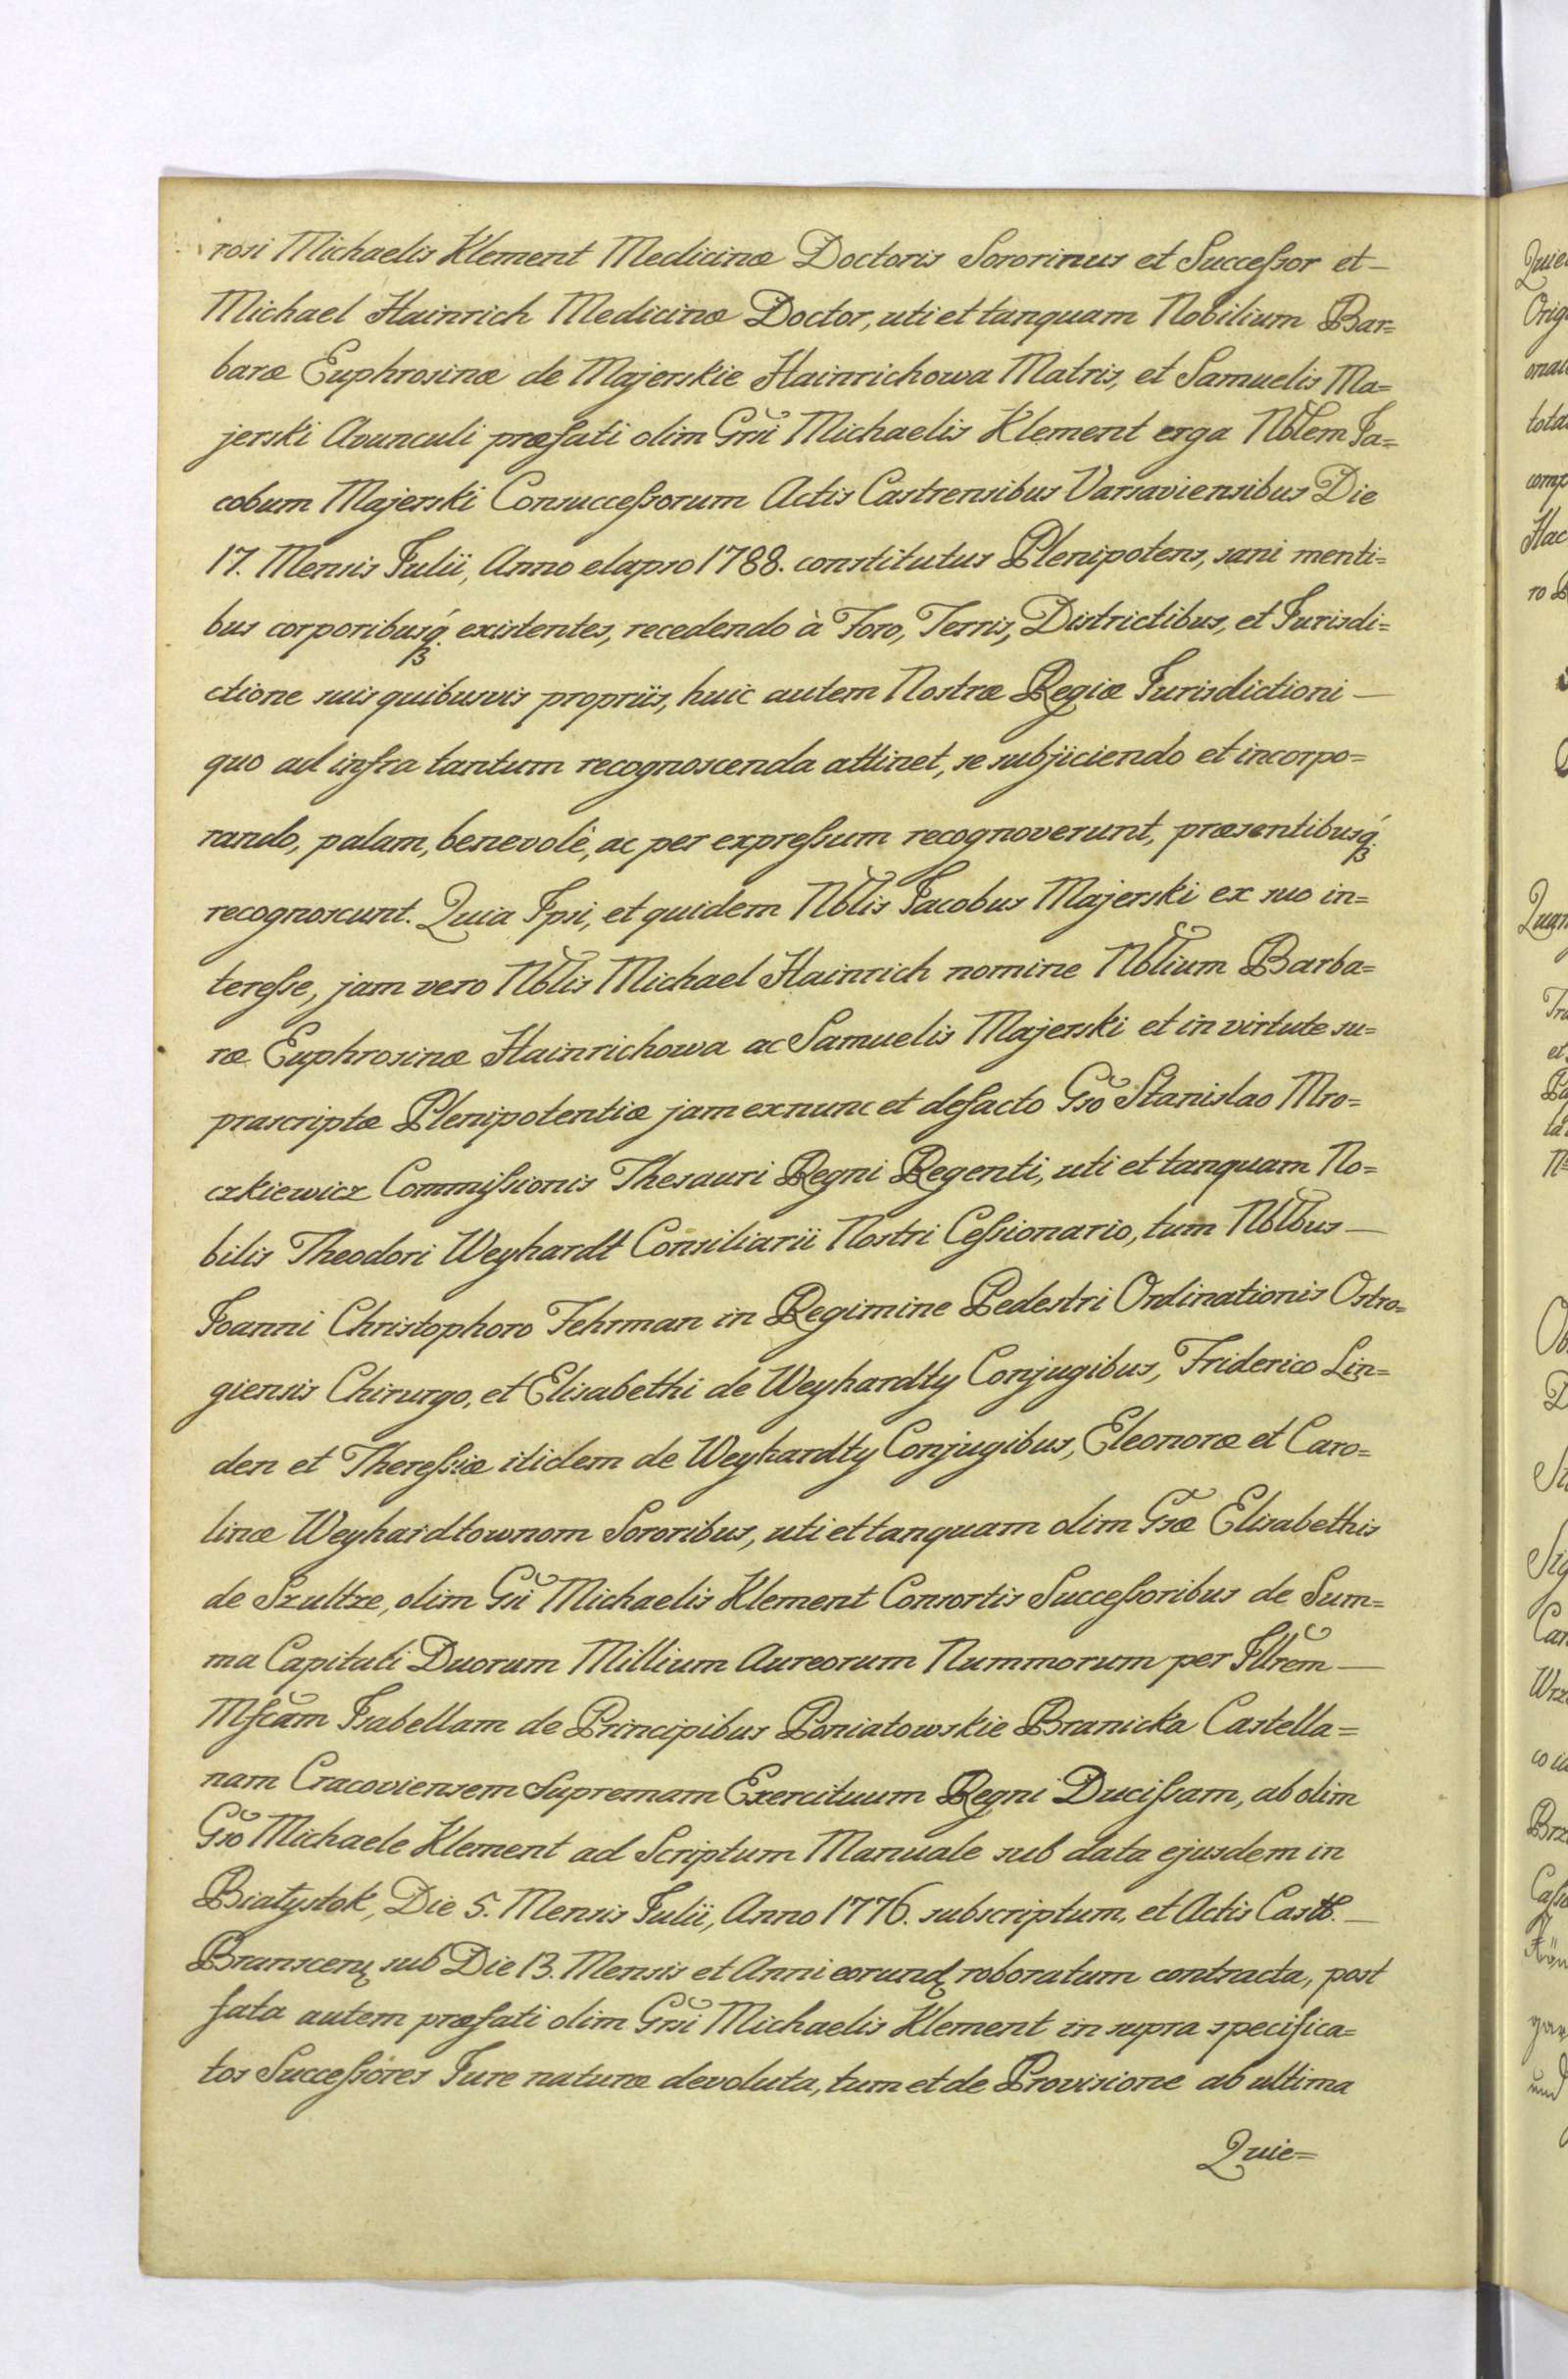 rosi Michaelis Klement Medicinæ Doctoris Sororinus et Succeſsor et —
Michael Hainrich Medicinæ Doctor, uti et tanquam Nobilium Bar=
baræ Euphrosinæ de Majerskie Hainrichowa Matris, et Samuelis Ma=
jerski Avunculi præfati olim Grsi Michaelis Klement erga Nblem Ja=
cobum Majerski Consucceſsorum Actis Castrensibus Varsaviensibus Die
17. Mensis Julii, Anno elapso 1788. constitutus Plenipotens, sani menti=
bus corporibusq́ꝫ existentes, recedendo à Foro, Terris, Districtibus, et Jurisdi=
ctione suis quibusvis propriis, huic autem Nostræ Regiæ Jurisdictioni —
quo ad infra tantum recognoscenda attinet, se subjiciendo et incorpo=
rando, palam, benevolè, ac per expreſsum recognoverunt, præsentibusq́ꝫ
recognoscunt. Quia Ipsi, et quidem Nblis Jacobus Majerski ex suo in=
tereſse, jam vero Nblis Michael Hainrich nomine Nblium Barba=
ræ Euphrosinæ Hainrichowa ac Samuelis Majerski et in virtute su=
præscriptæ Plenipotentiæ jam exnunc et defacto Gso Stanislao Mro=
czkiewicz Commiſsionis Thesauri Regni Regenti, uti et tanquam No=
bilis Theodori Weyhardt Consiliarii Nostri Ceſsionario, tum Nblbus —
Joanni Christophoro Fehrman in Regimine Pedestri Ordinationis Ostro=
giensis Chirurgo, et Elisabethi de Weyhardty Conjugibus, Friderico Lin=
den et Thereſsiæ itidem de Weyhardty Conjugibus, Eleonoræ et Caro=
linæ Weyhardtownom Sororibus, uti et tanquam olim Gsæ Elisabethis
de Szultze, olim Gsi Michaelis Klement Consortis Succeſsoribus de Sum=
ma Capitali Duorum Millium Aureorum Nummorum per Illrem —
Mfcam Isabellam de Principibus Poniatowskie Branicka Castella=
nam Cracoviensem Supremam Exercituum Regni Duciſsam, ab olim
Gso Michaele Klement ad Scriptum Manuale sub data ejusdem in
Białystok, Die 5. Mensis Julii, Anno 1776. subscriptum, et Actis Castr. —
Branscen. sub Die 13. Mensis et Anni eorund. roboratum contracta, post
fata autem præfati olim Grsi Michaelis Klement in supra specifica=
tos Succeſsores Jure naturæ devoluta, tum et de Provisione ab ultima
Quie=